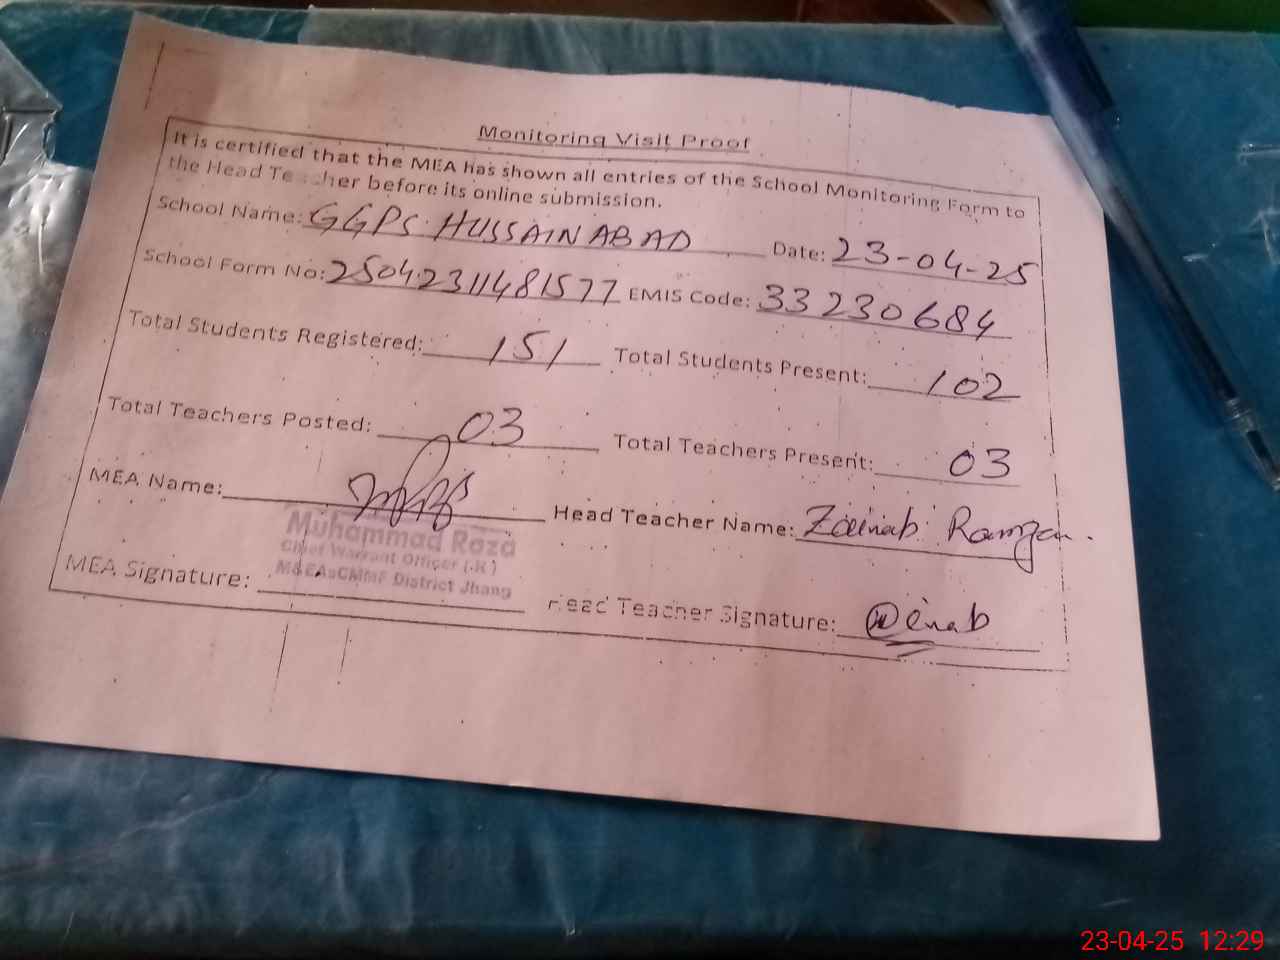 Monitoring Visit Proof
It is certified that the MEA has shown all entries of the School Monitoring Form to
the Head Teacher before its online submission.
School Name: GGPS HUSSAINABAD Date: 23-04-25
School Form No: 25042311481577 EMIS Code: 33230684
Total Students Registered: 151 Total Students Present: 102
Total Teachers Posted: 03 Total Teachers Present: 03
MEA Name: Head Teacher Name: Zainab Ramzan.
Muhammad Raza
Chief Warrant Officer (R)
M&EAsCMMF District Jhang
MEA Signature: Head Teacher Signature: Zainab
23-04-25 12:29